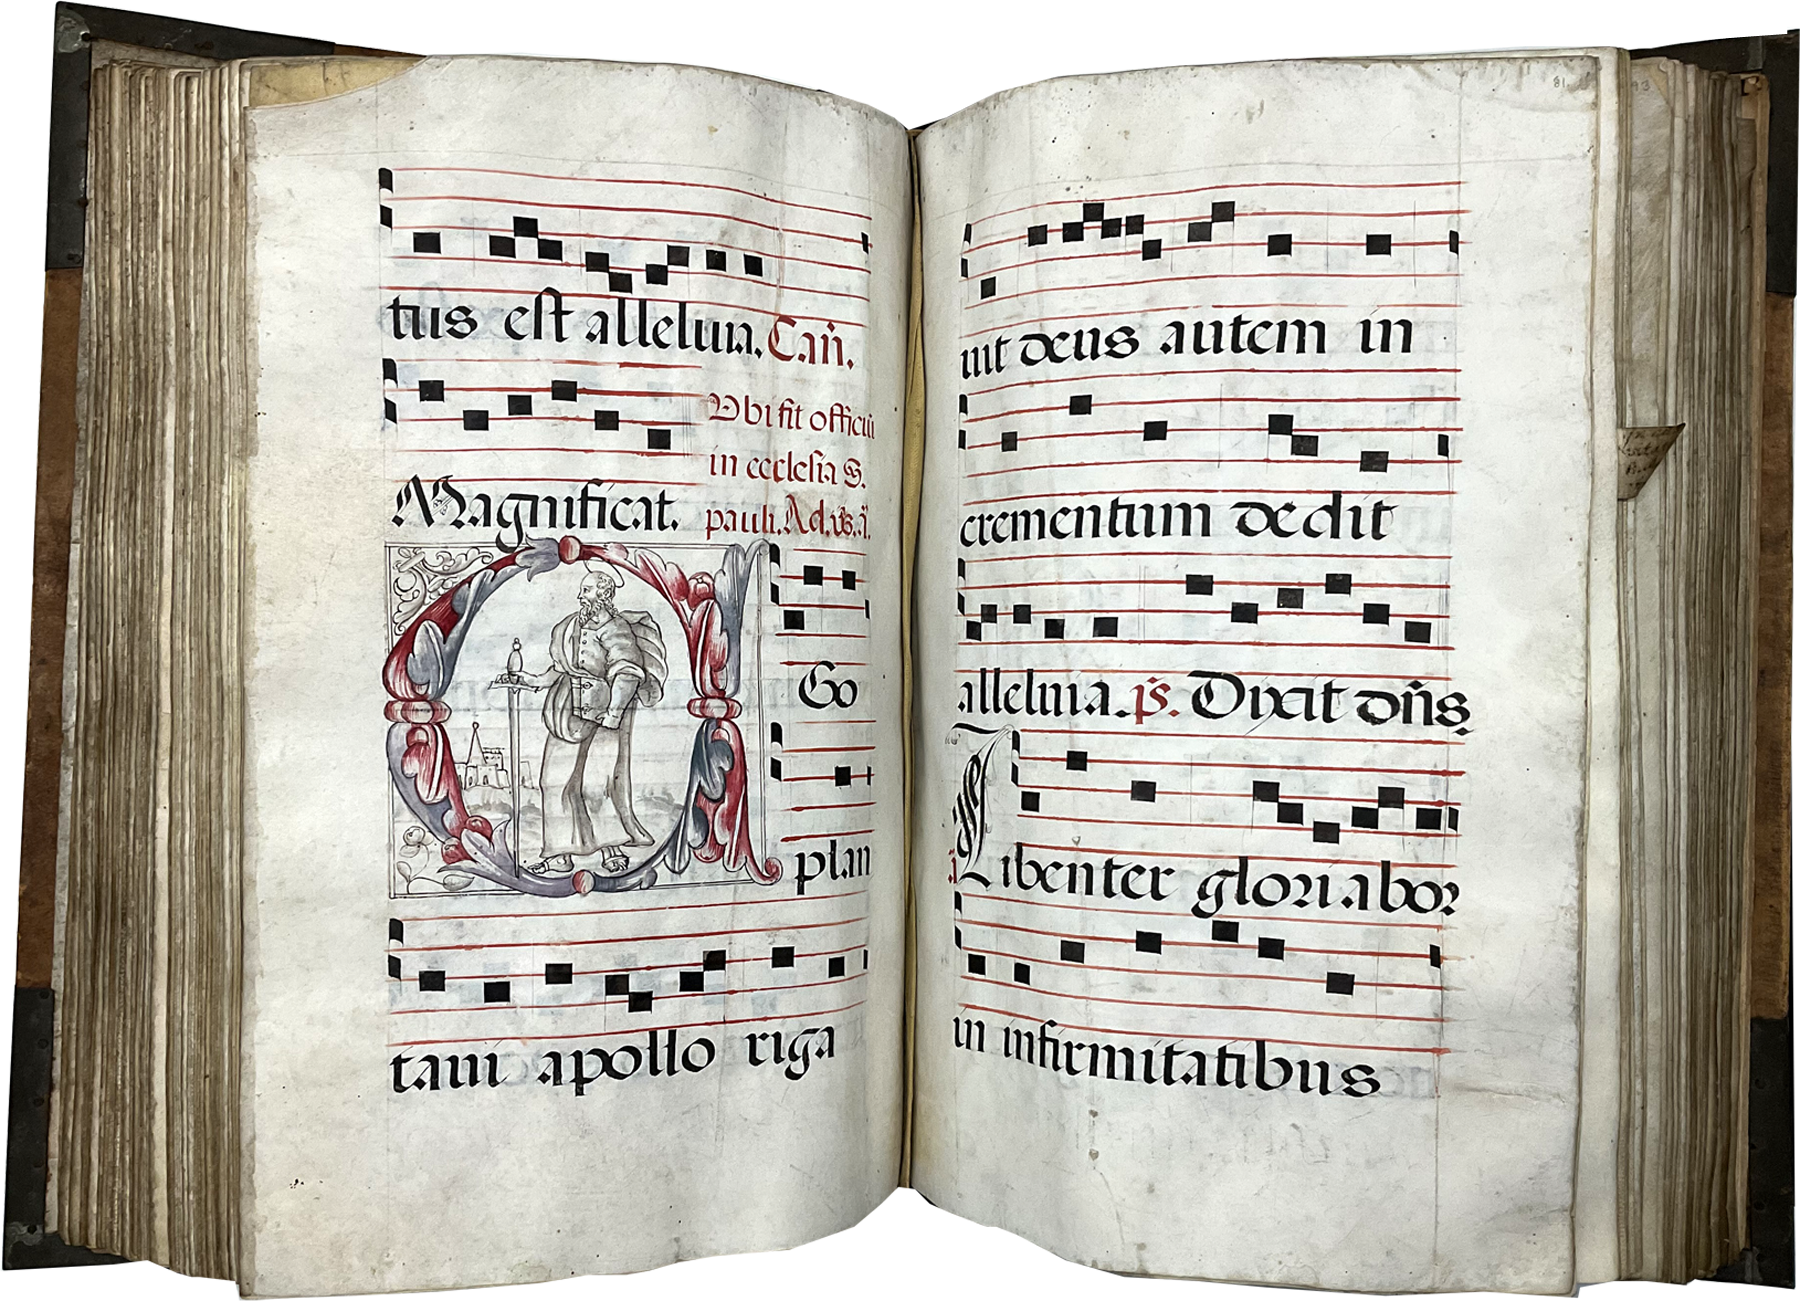 tus est alleluia. Can̄.
Vbi fit officiū
in ecclesia S.
Magnificat. pauli. Ad. vs. a.
Go
plan
tavi apollo riga
vit deus autem in
crementum dedit
alleluia. ps. Dixit dn̄s
Libenter gloriabor
in infirmitatibus
81
93